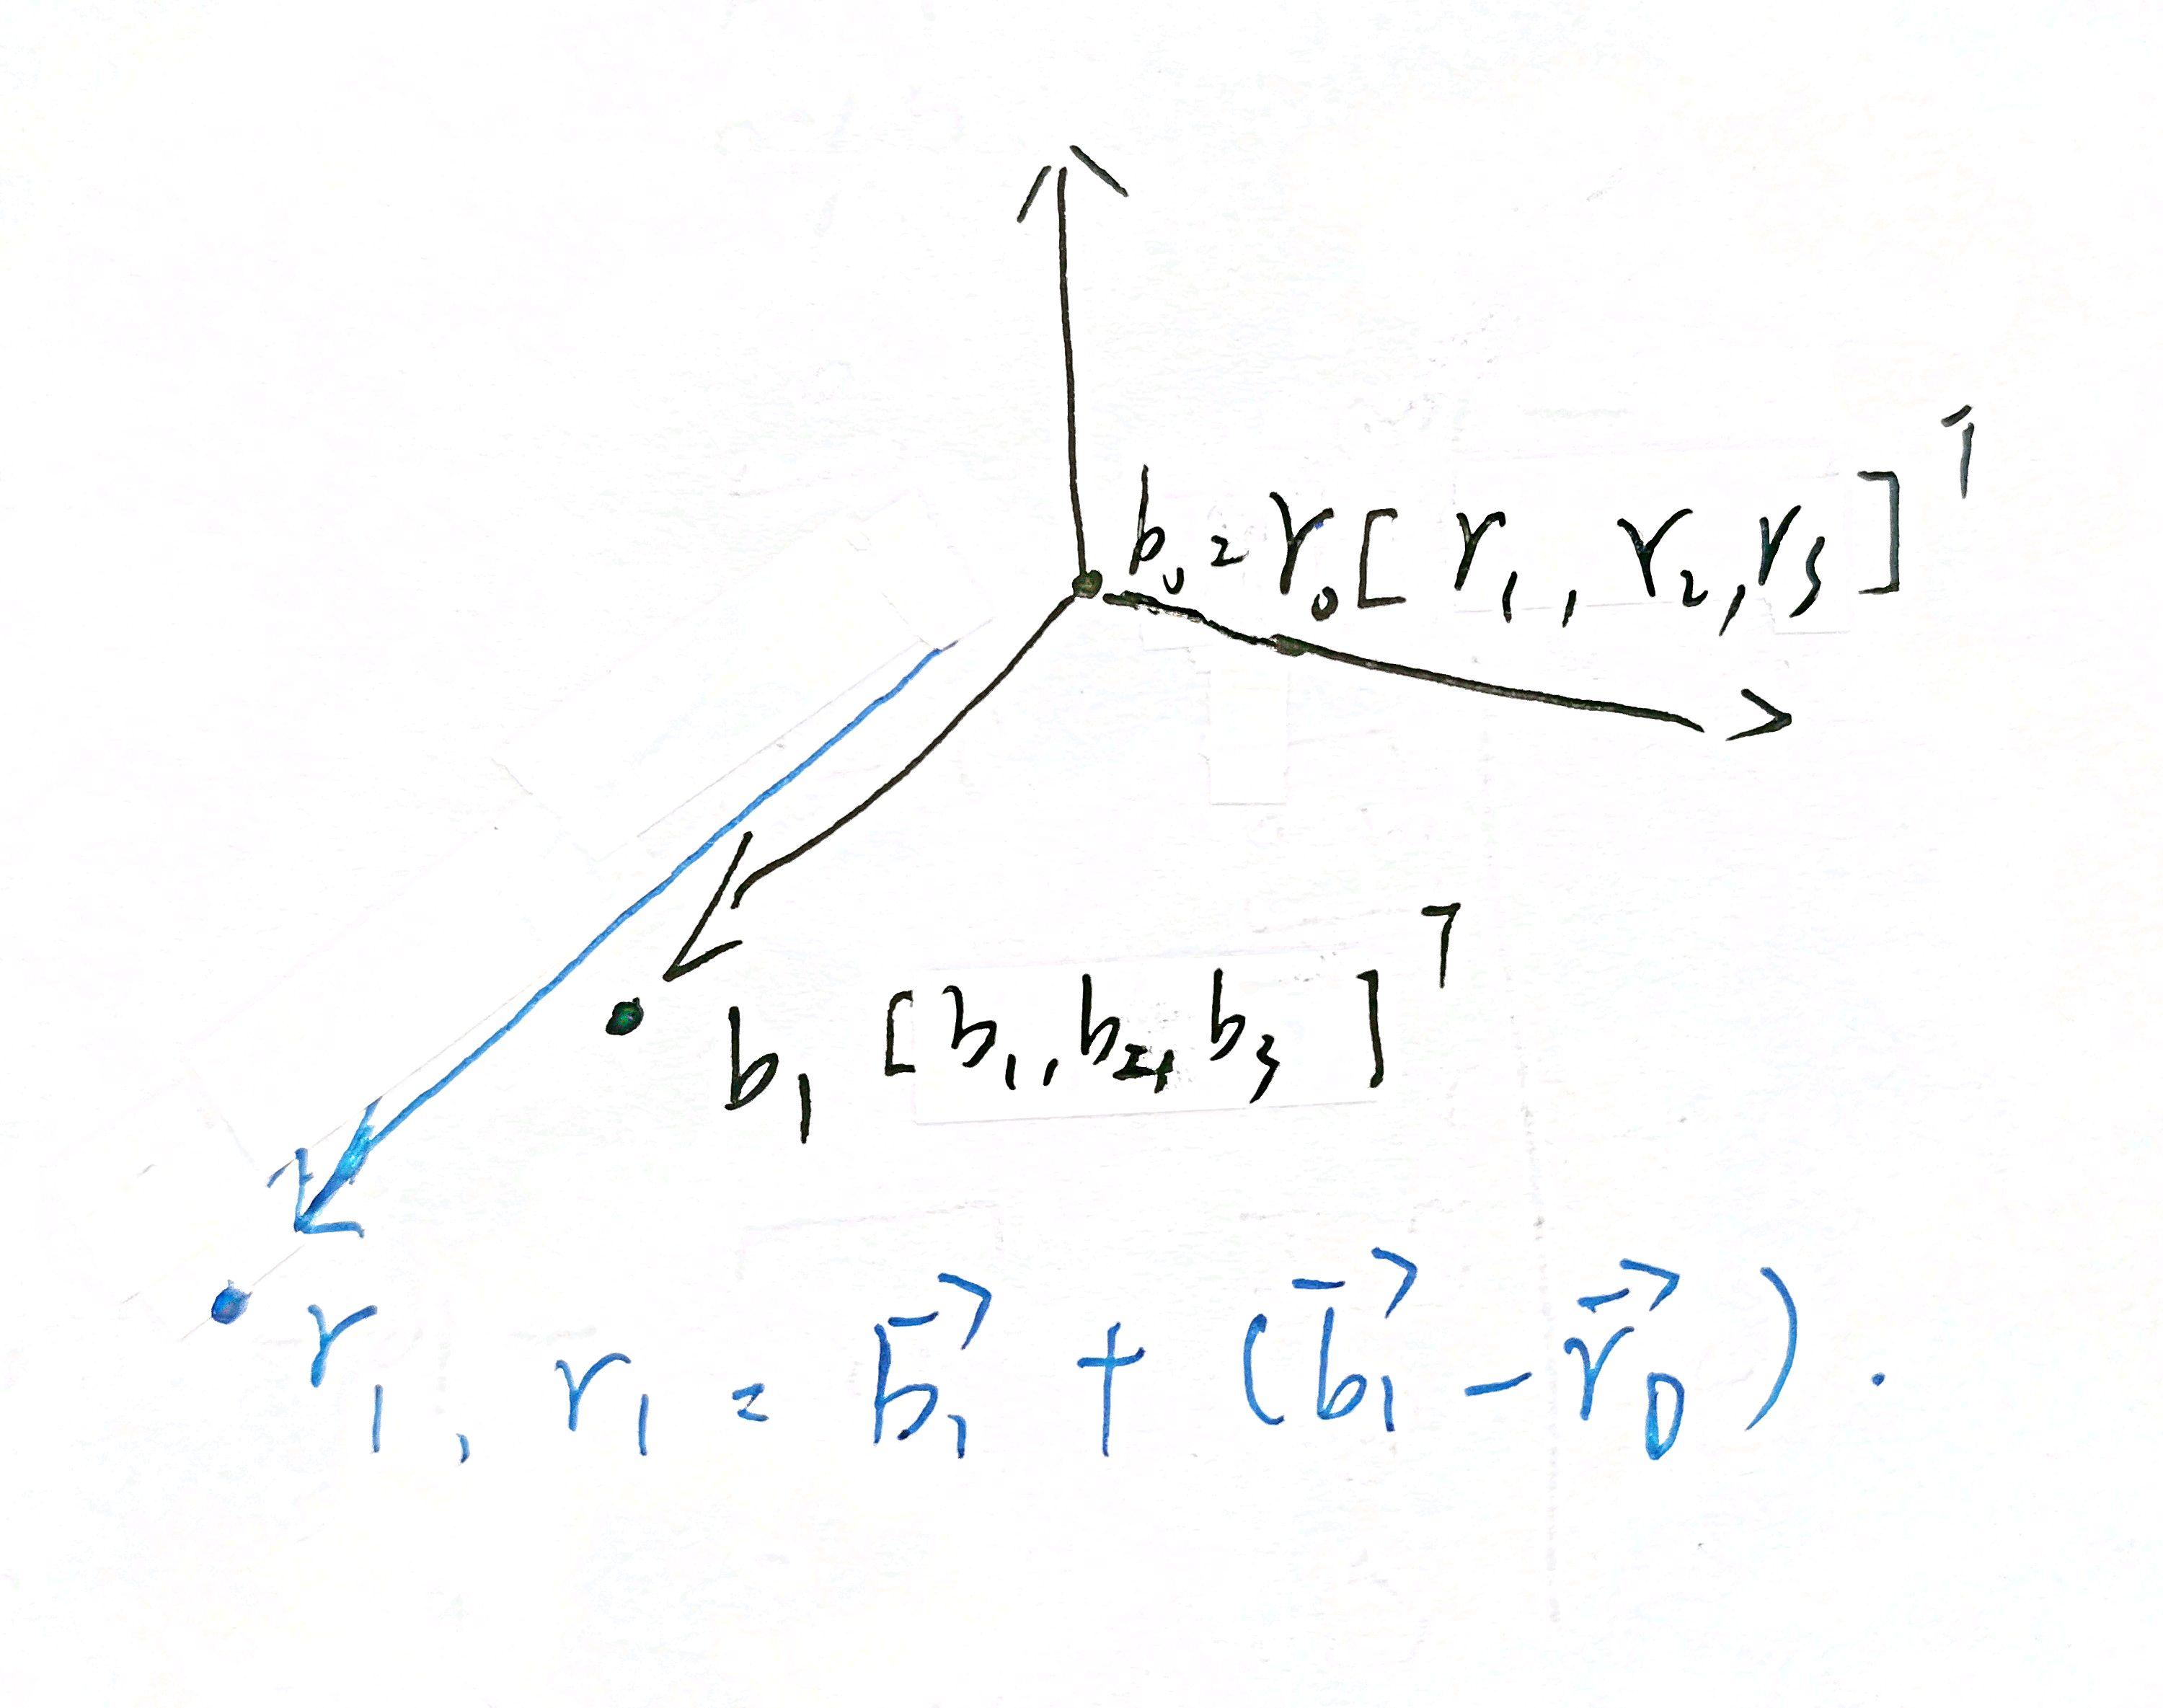 b₀ = r₀ [ r₁, r₂, r₃ ]ᵀ
b₁ [ b₁, b₂, b₃ ]ᵀ
r₁, r₁ = b⃗₁ + (b⃗₁ - r⃗₀).